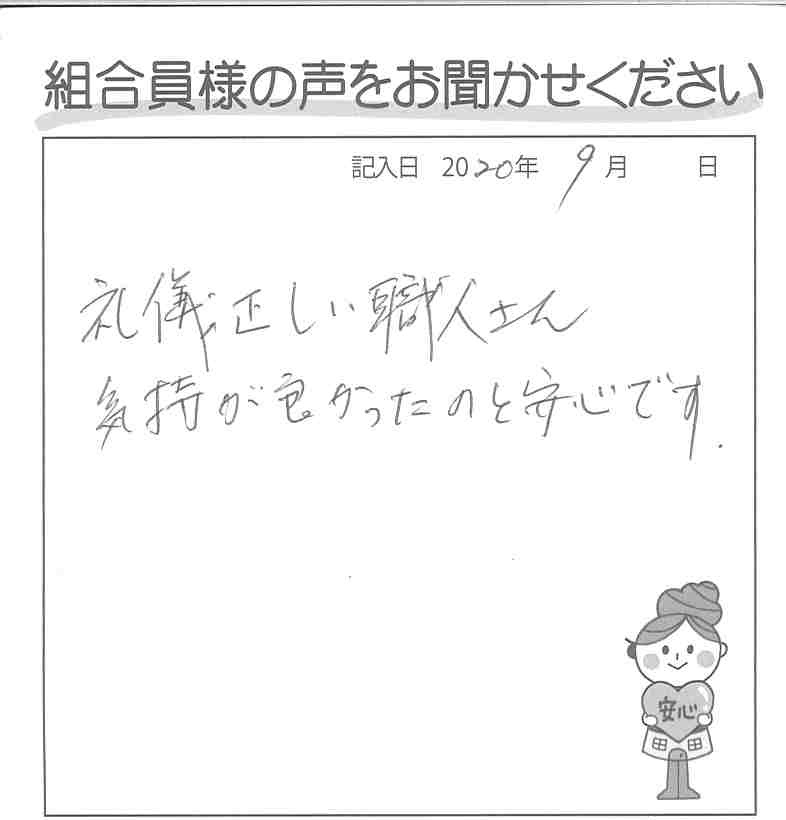 組合員様の声をお聞かせください
記入日 2020年 9月 日
礼儀正しい職人さん
気持が良かったのと安心です.
安心